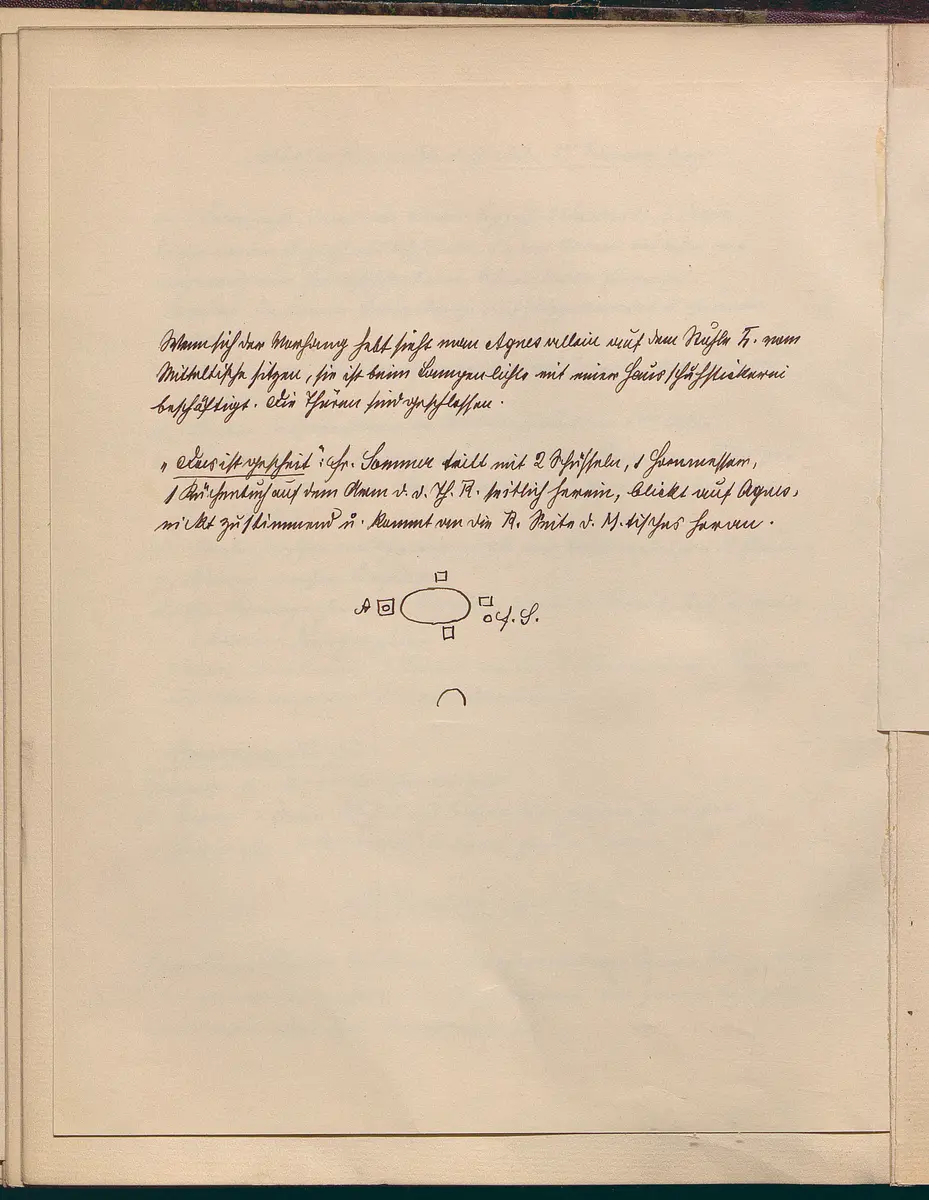 Wenn sich der Vorhang hebt sieht man Agnes allein auf dem Stuhle L. vom
Mitteltische sitzen, sie ist beim Lampenlichte mit einer Hausschuhstickerei
beschäftigt. Die Thüren sind geschlossen.
„Das ist gescheit": Fr. Sommer teilt mit 2 Schüsseln, 1 Hornmesser,
1 Küchentuch auf dem Arm d. d. Th. R. seitlich herein, blickt auf Agnes,
nickt zustimmend u. kommt an die R. Seite d. M.tisches heran.
A
f. S.